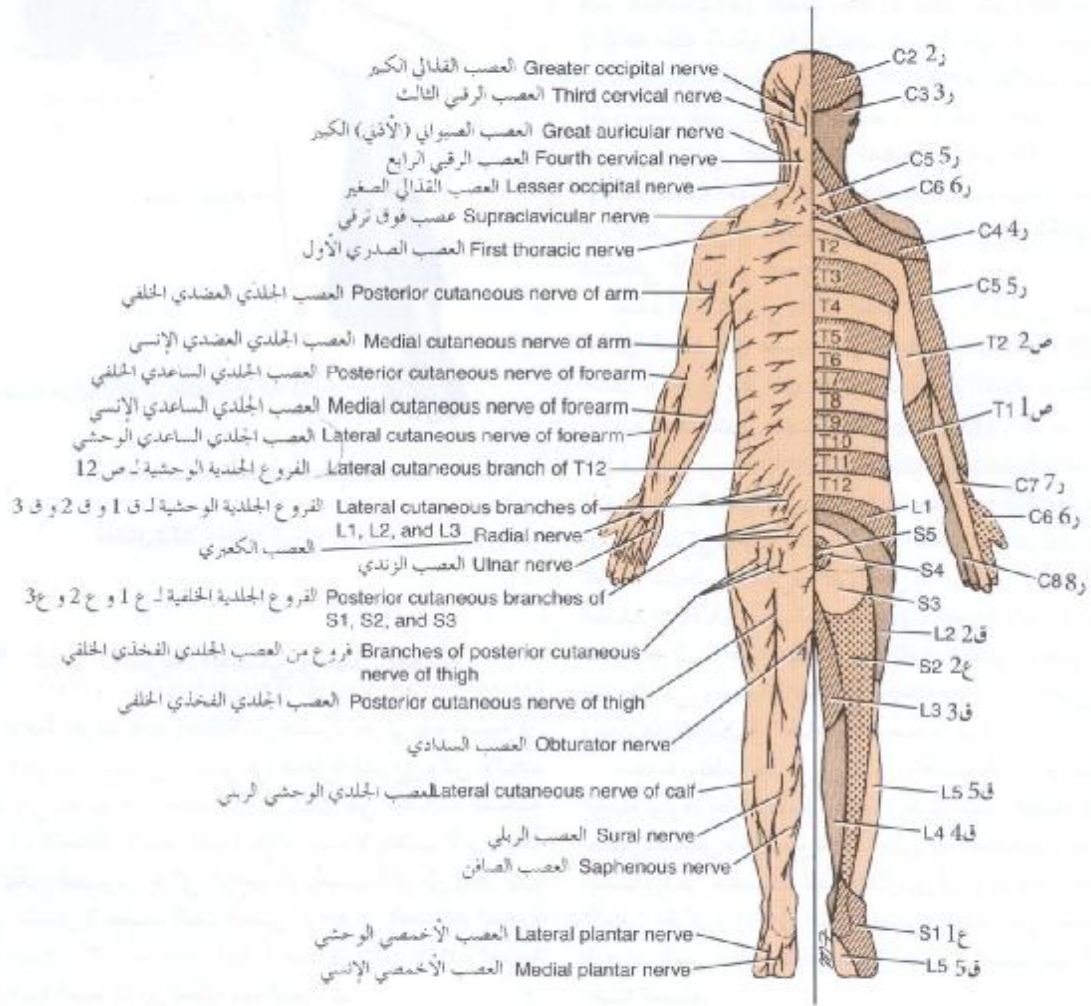 العصب القذالي الكبير Greater occipital nerve
العصب الرقبي الثالث Third cervical nerve
العصب الصيواني (الأذني) الكبير Great auricular nerve
العصب الرقبي الرابع Fourth cervical nerve
العصب القذالي الصغير Lesser occipital nerve
عصب فوق ترقي Supraclavicular nerve
العصب الصدري الأول First thoracic nerve
العصب الجلدي العضدي الخلفي Posterior cutaneous nerve of arm
العصب الجلدي العضدي الإنسي Medial cutaneous nerve of arm
العصب الجلدي الساعدي الخلفي Posterior cutaneous nerve of forearm
العصب الجلدي الساعدي الإنسي Medial cutaneous nerve of forearm
العصب الجلدي الساعدي الوحشي Lateral cutaneous nerve of forearm
الفروع الجلدية الوحشية لـ ص 12 Lateral cutaneous branch of T12
الفروع الجلدية الوحشية لـ ق 1 و ق 2 و ق 3 Lateral cutaneous branches of
L1, L2, and L3
العصب الكعبري Radial nerve
العصب الزندي Ulnar nerve
الفروع الجلدية الخلفية لـ ع 1 و ع 2 و ع3 Posterior cutaneous branches of
S1, S2, and S3
فروع من العصب الجلدي الفخذي الخلفي Branches of posterior cutaneous
nerve of thigh
العصب الجلدي الفخذي الخلفي Posterior cutaneous nerve of thigh
العصب السدادي Obturator nerve
العصب الجلدي الوحشي الربلي Lateral cutaneous nerve of calf
العصب الربلي Sural nerve
العصب الصافن Saphenous nerve
العصب الأخمصي الوحشي Lateral plantar nerve
العصب الأخمصي الإنسي Medial plantar nerve
C2 ر2
C3 ر3
C5 ر5
C6 ر6
C4 ر4
C5 ر5
T2 ص2
T1 ص1
C7 ر7
C6 ر6
C8 ر8
T2
T3
T4
T5
T6
T7
T8
T9
T10
T11
T12
L1
S5
S4
S3
L2 ق2
S2 ع2
L3 ق3
L5 ق5
L4 ق4
S1 ع1
L5 ق5